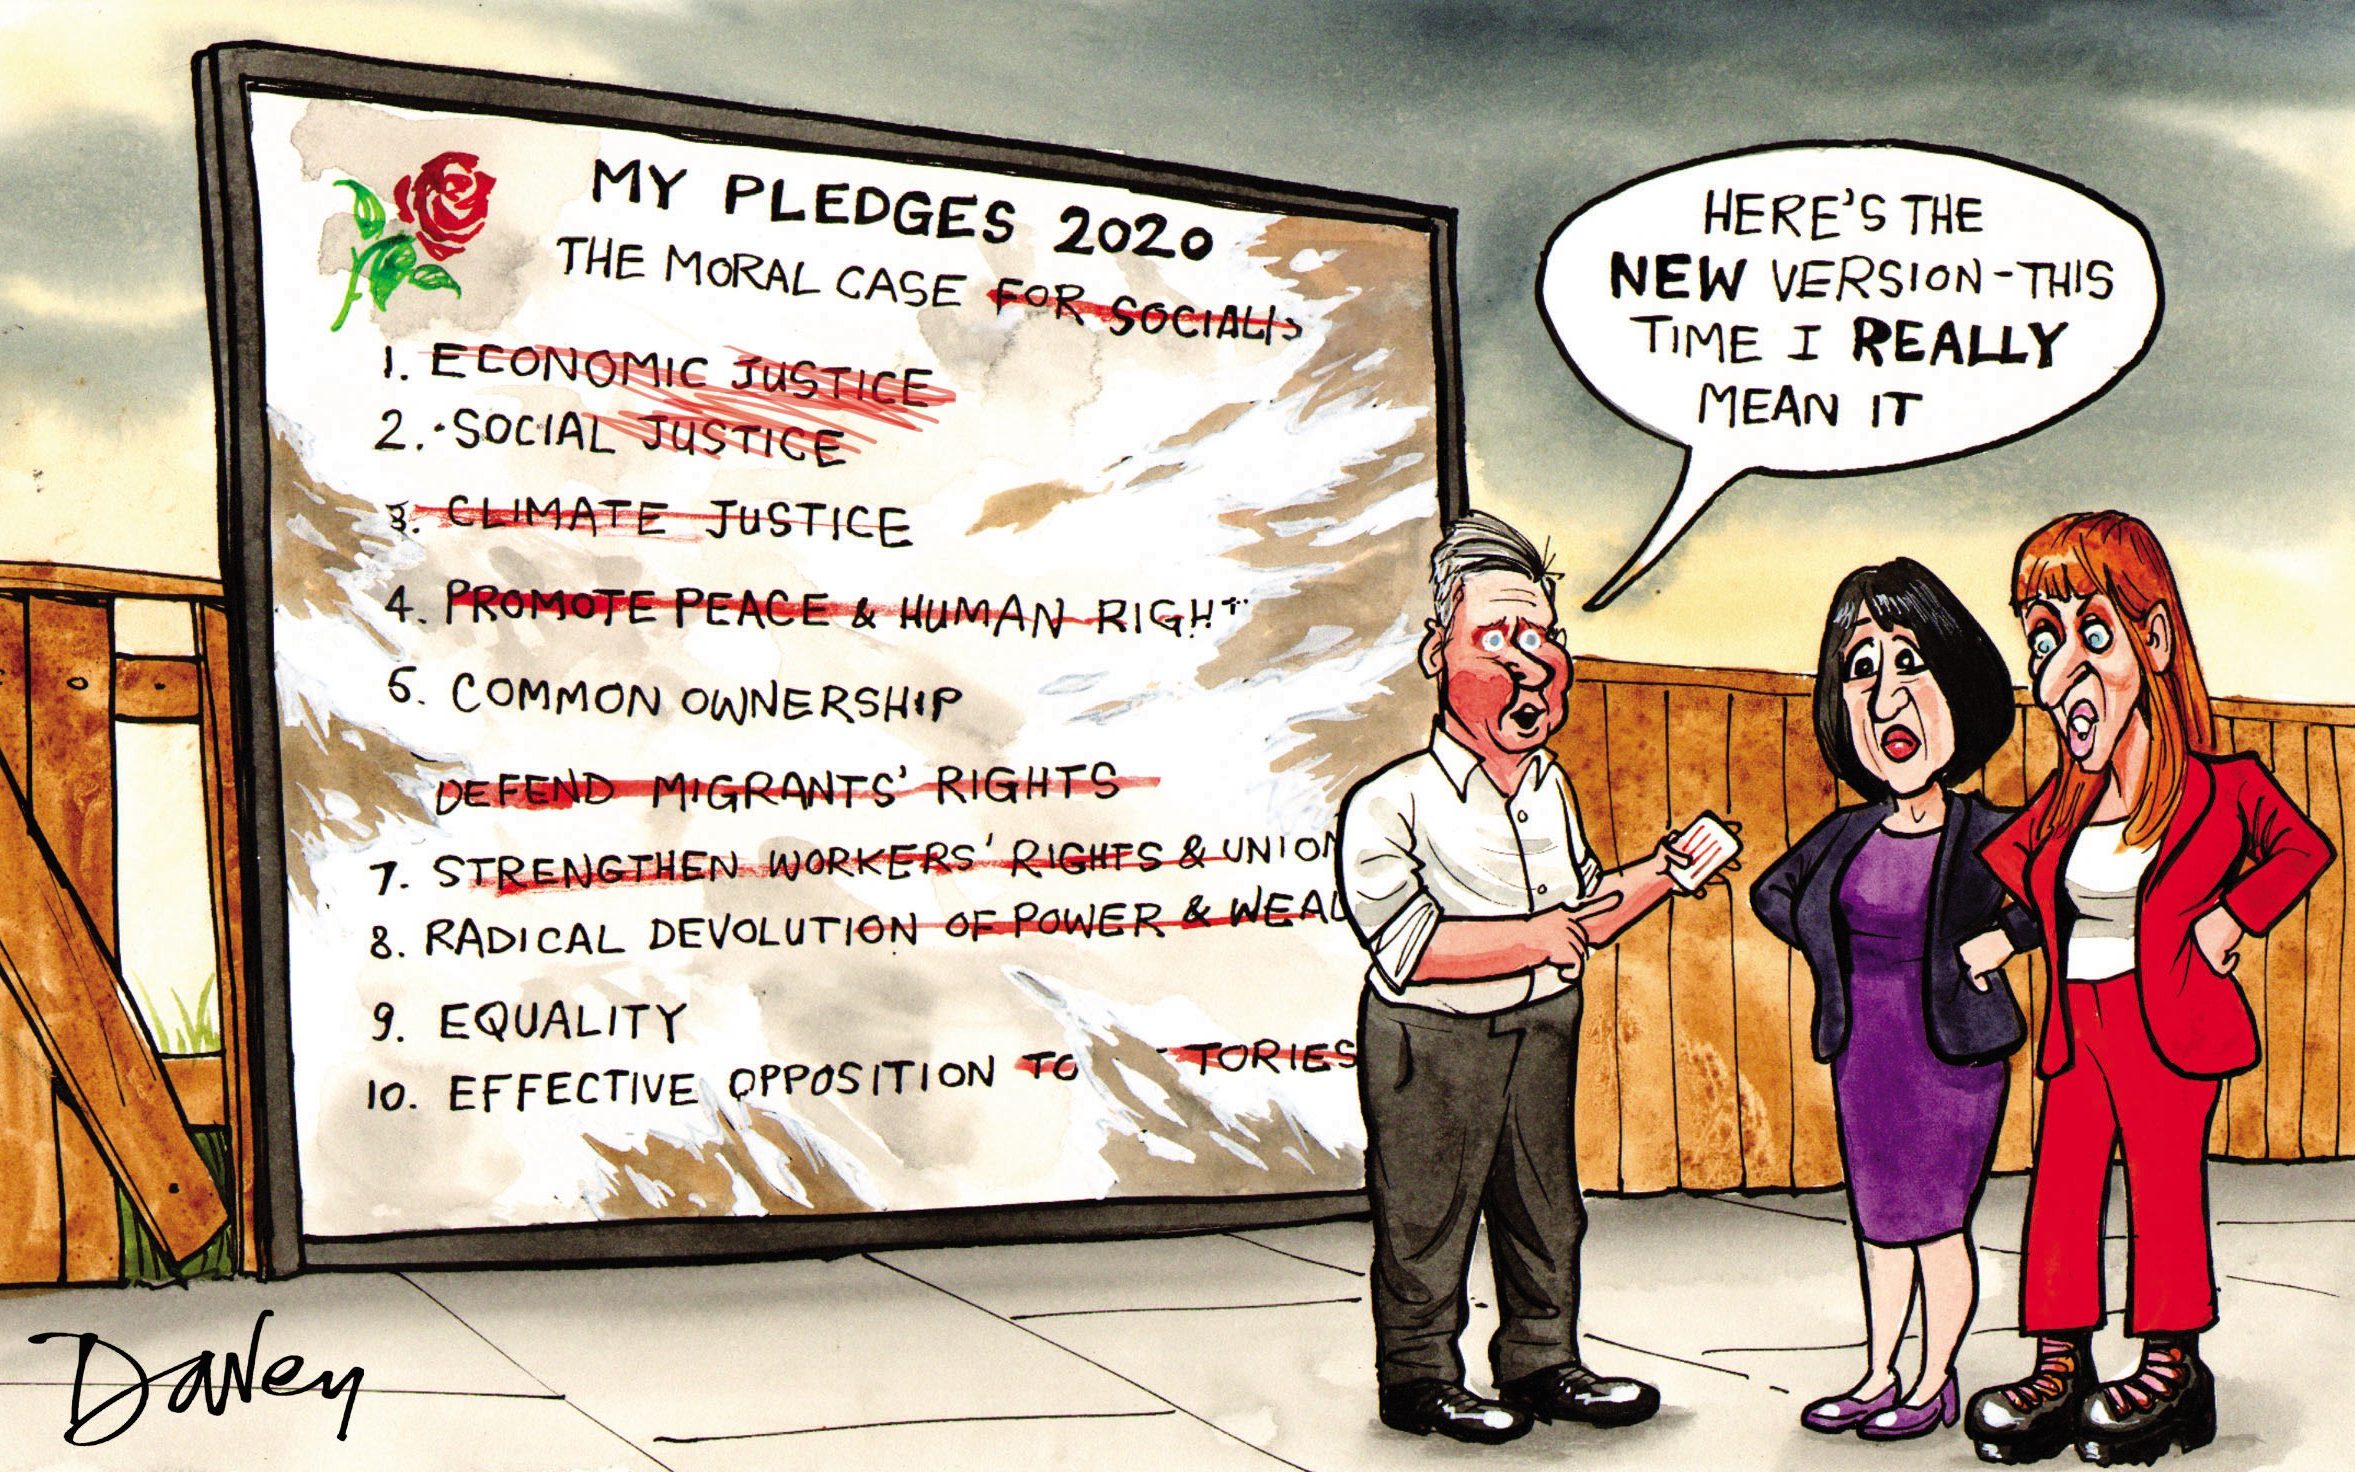 MY PLEDGES 2020
THE MORAL CASE FOR SOCIALIS
1. ECONOMIC JUSTICE
2. SOCIAL JUSTICE
3. CLIMATE JUSTICE
4. PROMOTE PEACE & HUMAN RIGHT
5. COMMON OWNERSHIP
DEFEND MIGRANTS' RIGHTS
7. STRENGTHEN WORKERS' RIGHTS & UNION
8. RADICAL DEVOLUTION OF POWER & WEAL
9. EQUALITY
10. EFFECTIVE OPPOSITION TO TORIES
HERE'S THE
NEW VERSION - THIS
TIME I REALLY
MEAN IT
Davey